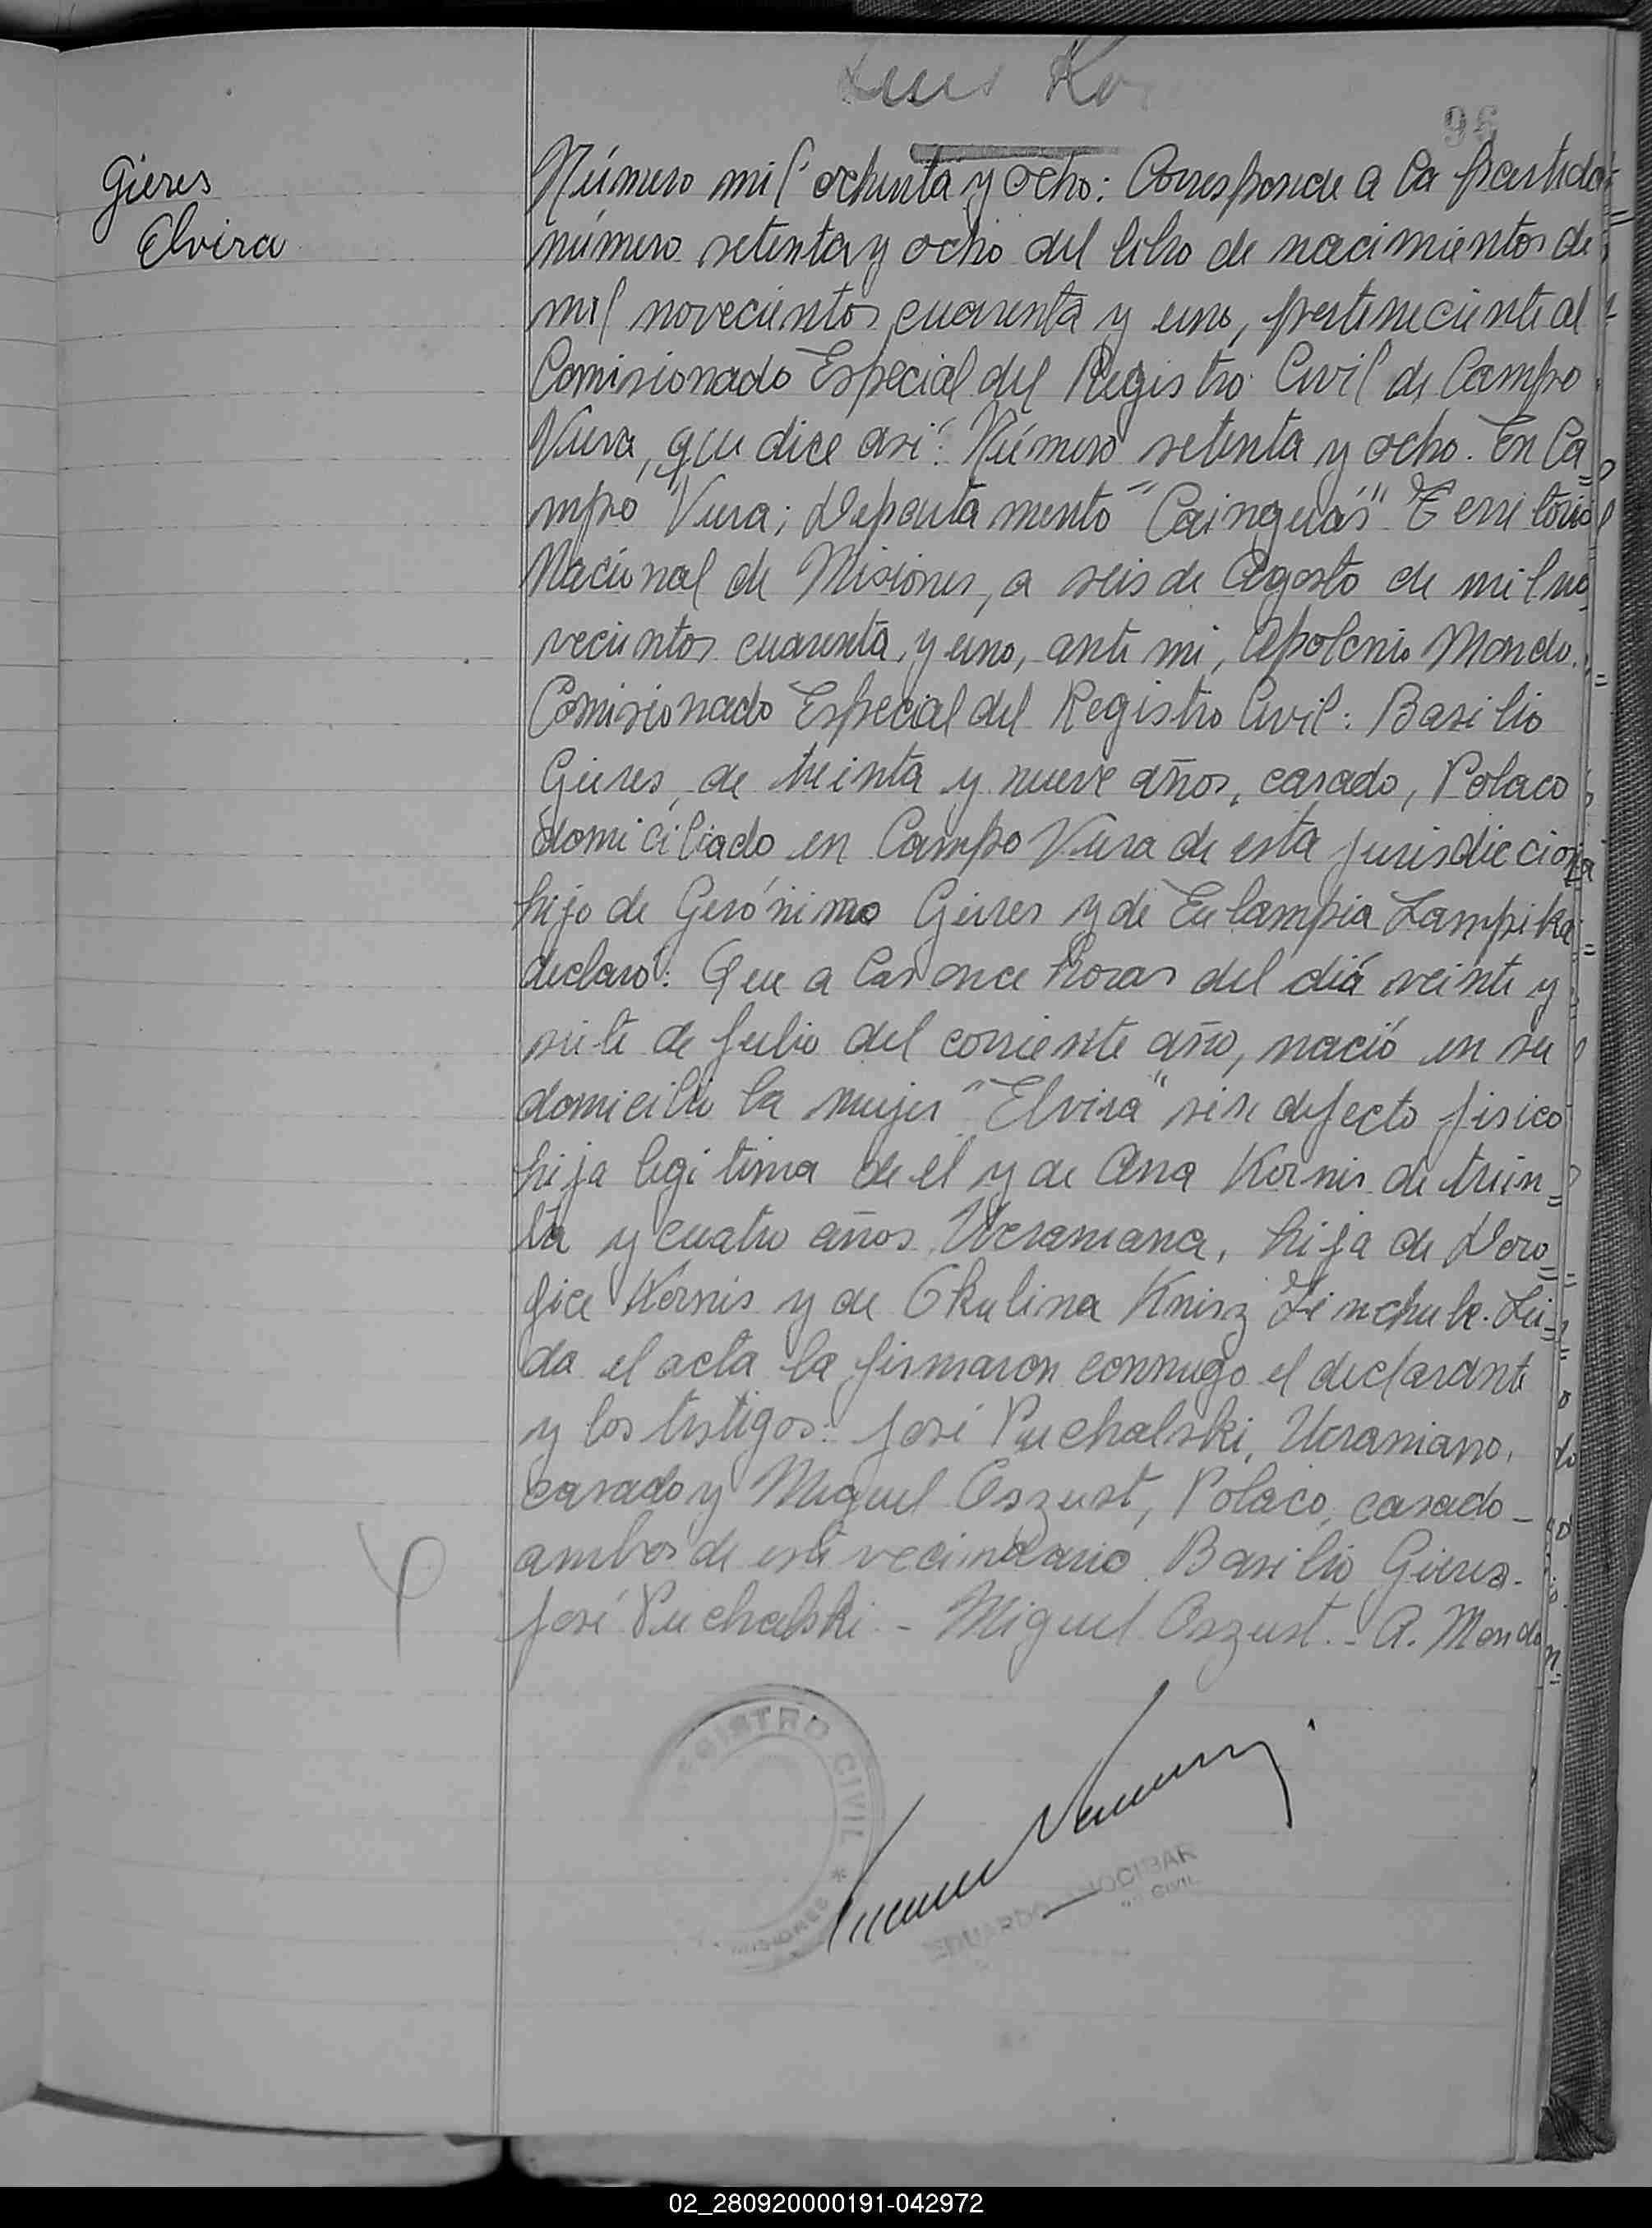 Luis Ko
96
Gieres
Elvira
Número mil ochenta y ocho: Corresponde a la partida
número setenta y ocho del libro de nacimientos de
mil novecientos cuarenta y uno, perteneciente al
Comisionado Especial del Registro Civil de Campo
Viera, que dice asi: Número setenta y ocho. En Ca=
mpo Viera; Departamento "Cainguás" Territorio
Nacional de Misiones, a seis de Agosto de mil no=
vecientos cuarenta y uno, ante mi, Apolonio Mondo.
Comisionado Especial del Registro Civil: Basilio
Gieres, de treinta y nueve años, casado, Polaco
domiciliado en Campo Viera de esta jurisdicción
hijo de Gerónimo Gieres y de Eulampia Lampika
declaró: Que a las once horas del diá veinte y
siete de Julio del corriente año, nació en su
domicilio la mujer "Elvira" sin defecto fisico
hija legitima de el y de Ana Kornis de trein=
ta y cuatro años Ucraniana, hija de Doro=
fice Kornis y de Okulina Knisz Zinchuk. Lei=
da el acta la firmaron conmigo el declarante
y los testigos: José Puchalski, Ucraniano,
casado y Miguel Oszust, Polaco, casado -
ambos de este vecindario. Basilio Gieres.
José Puchalski. - Miguel Oszust. - A. Mondo
REGISTRO CIVIL *
MISIONES
EDUARDO
CIVIL
02_280920000191-042972